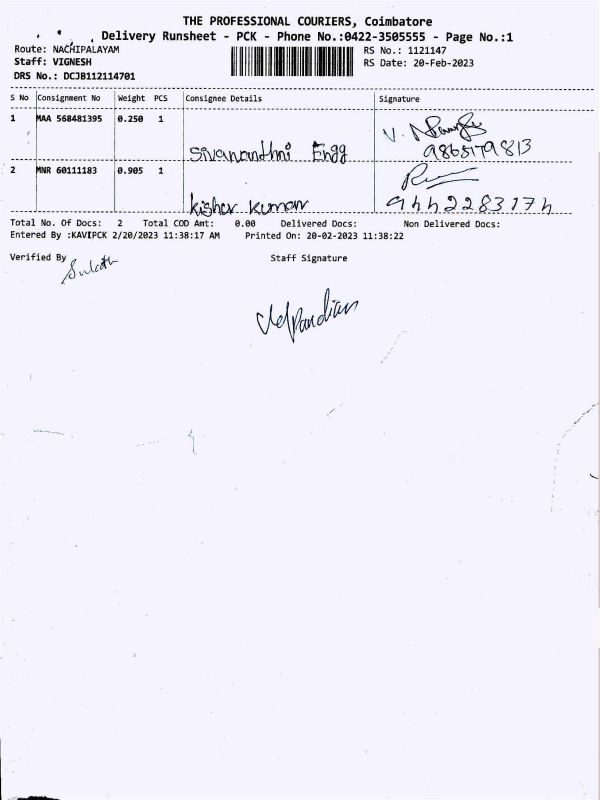 THE PROFESSIONAL COURIERS, Coimbatore
Delivery Runsheet - PCK - Phone No.:0422-3505555 - Page No.:1
Route: NACHIPALAYAM RS No.: 1121147
Staff: VIGNESH RS Date: 20-Feb-2023
DRS No.: DCJB112114701
S No Consignment No Weight PCS Consignee Details Signature
1 MAA 568481395 0.250 1
Sivanandhni Engg 9865179813
2 MNR 60111183 0.905 1
kishor kumar 9442283174
Total No. Of Docs: 2 Total COD Amt: 0.00 Delivered Docs: Non Delivered Docs:
Entered By :KAVIPCK 2/20/2023 11:38:17 AM Printed On: 20-02-2023 11:38:22
Verified By Staff Signature